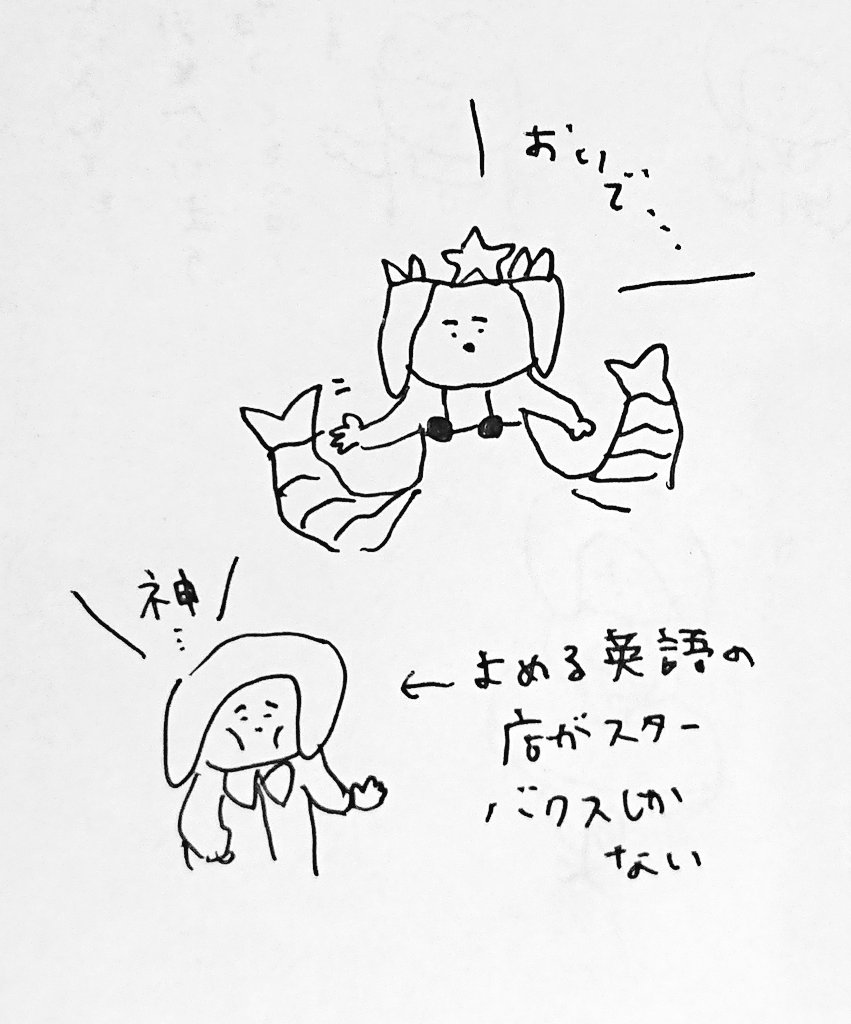 おいで…
神…
←よめる英語の
店がスター
バクスしか
ない